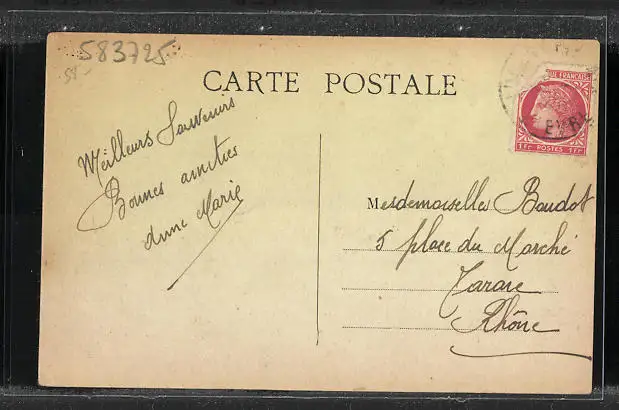 583725
CARTE POSTALE
UE FRANÇAISE
1Fr POSTES 1Fr
Meilleurs Souvenirs
Bonnes amitiés
Marie
Mesdemoiselles Baudot
5 place du Marché
Tarare
Rhône